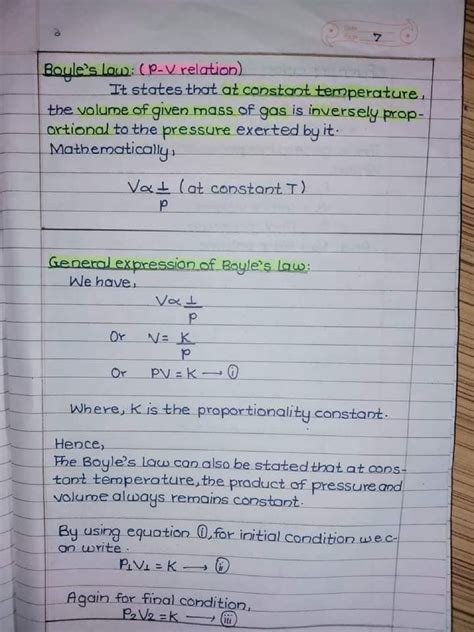 7
Boyle's law: (P-V relation)
It states that at constant temperature,
the volume of given mass of gas is inversely prop-
ortional to the pressure exerted by it.
Mathematically,
V∝ 1/P (at constant T)
General expression of Boyle's law:
We have,
V∝ 1/P
Or V= K/P
Or PV = K → (i)
Where, K is the proportionality constant.
Hence,
The Boyle's Law can also be stated that at cons-
tant temperature, the product of pressure and
volume always remains constant.
By using equation (i), for initial condition we c-
an write.
P₁V₁ = K → (ii)
Again for final condition,
P₂V₂ = K → (iii)